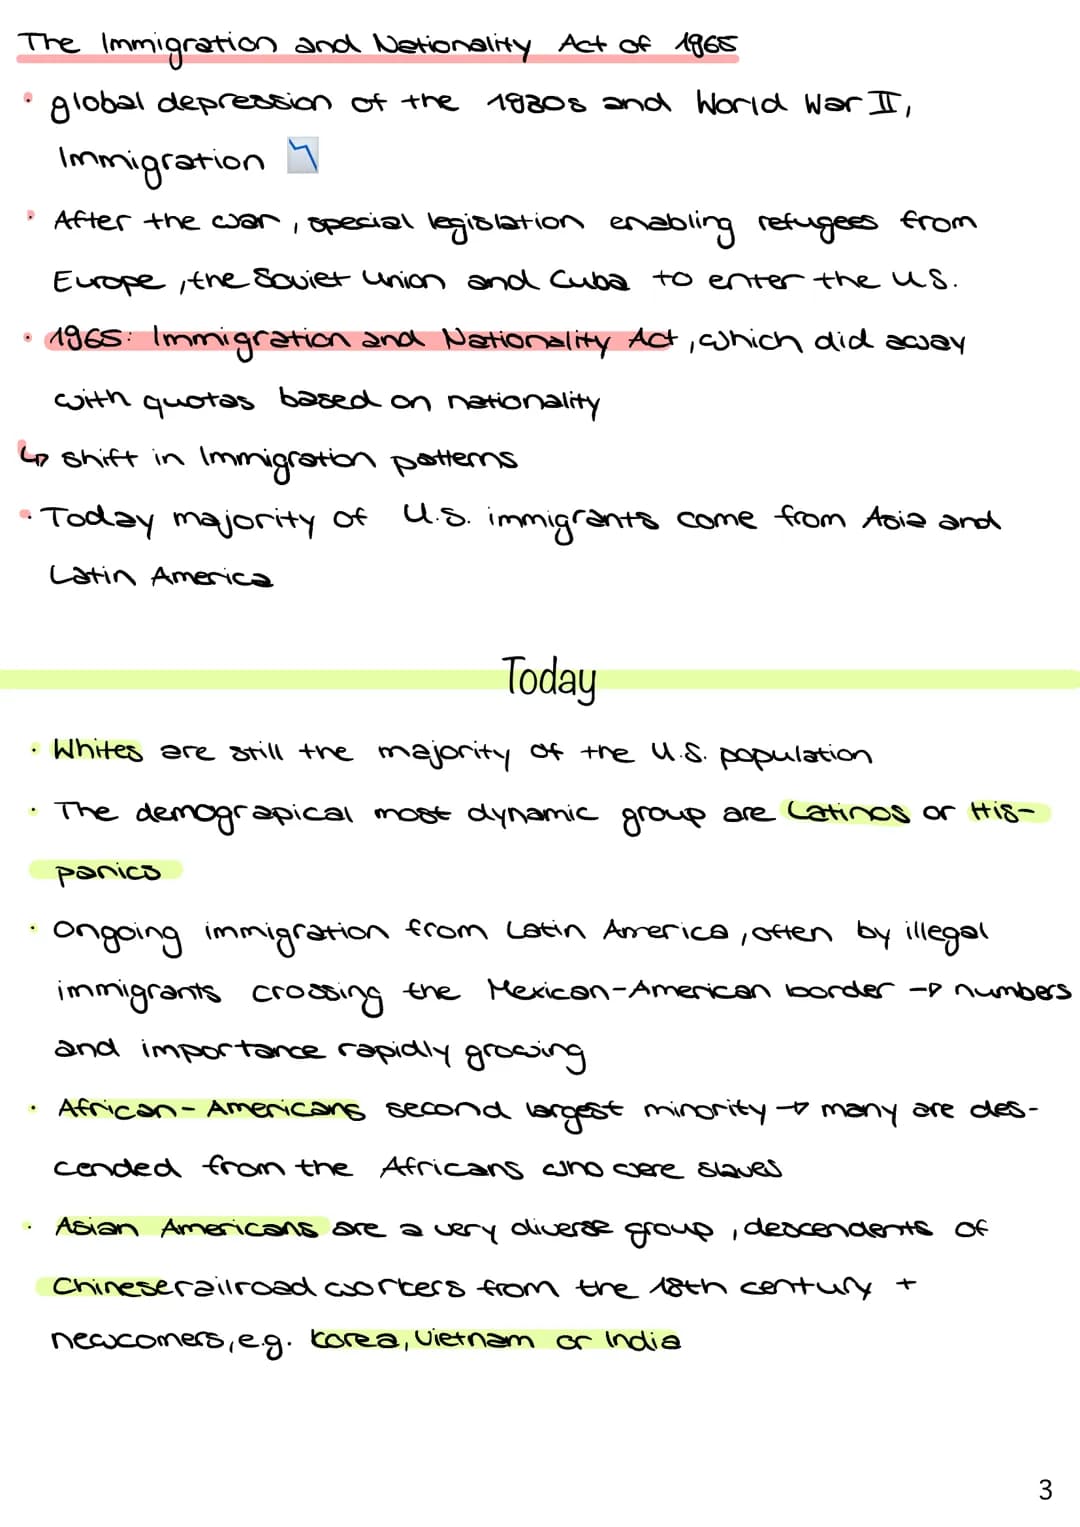 The Immigration and Nationality Act of 1965
• global depression of the 1930s and World War II,
Immigration
• After the war, special legislation enabling refugees from
Europe, the Soviet Union and Cuba to enter the U.S.
• 1965: Immigration and Nationality Act, which did away
with quotas based on nationality
↳ shift in Immigration patterns
• Today majority of U.S. immigrants come from Asia and
Latin America
Today
• Whites are still the majority of the U.S. population
• The demograpical most dynamic group are Latinos or His-
panics
• Ongoing immigration from Latin America, often by illegal
immigrants crossing the Mexican-American border → numbers
and importance rapidly growing
• African-Americans second largest minority → many are des-
cended from the Africans who were slaves
• Asian Americans are a very diverse group, descendents of
Chinese railroad workers from the 18th century +
newcomers, e.g. Korea, Vietnam or India
3